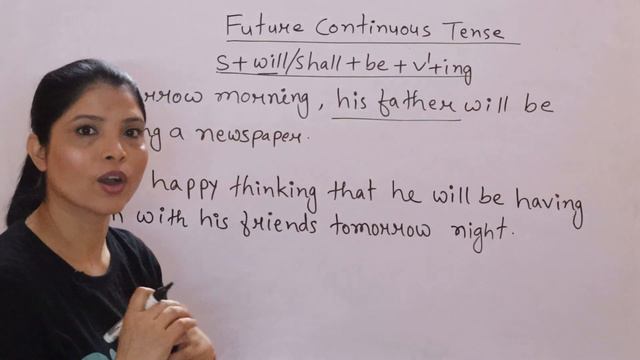 Future Continuous Tense
S + will/shall + be + v'+ing
morning, his father will be
a newspaper.
happy thinking that he will be having
with his friends tomorrow night.